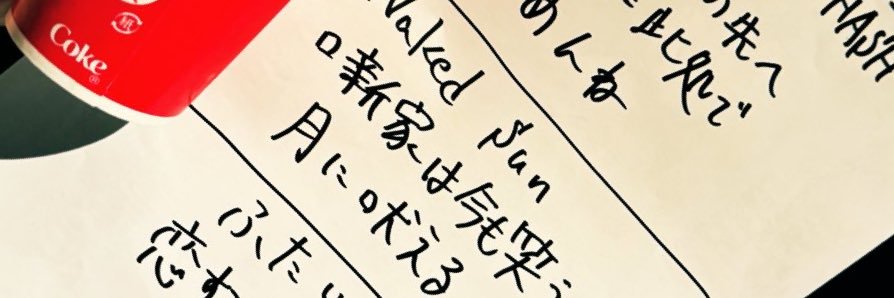 Coke
HASH
の先
此処で
めんね
Naked Sun
噺家は今も笑う
月に吠える
ふたり
恋わ